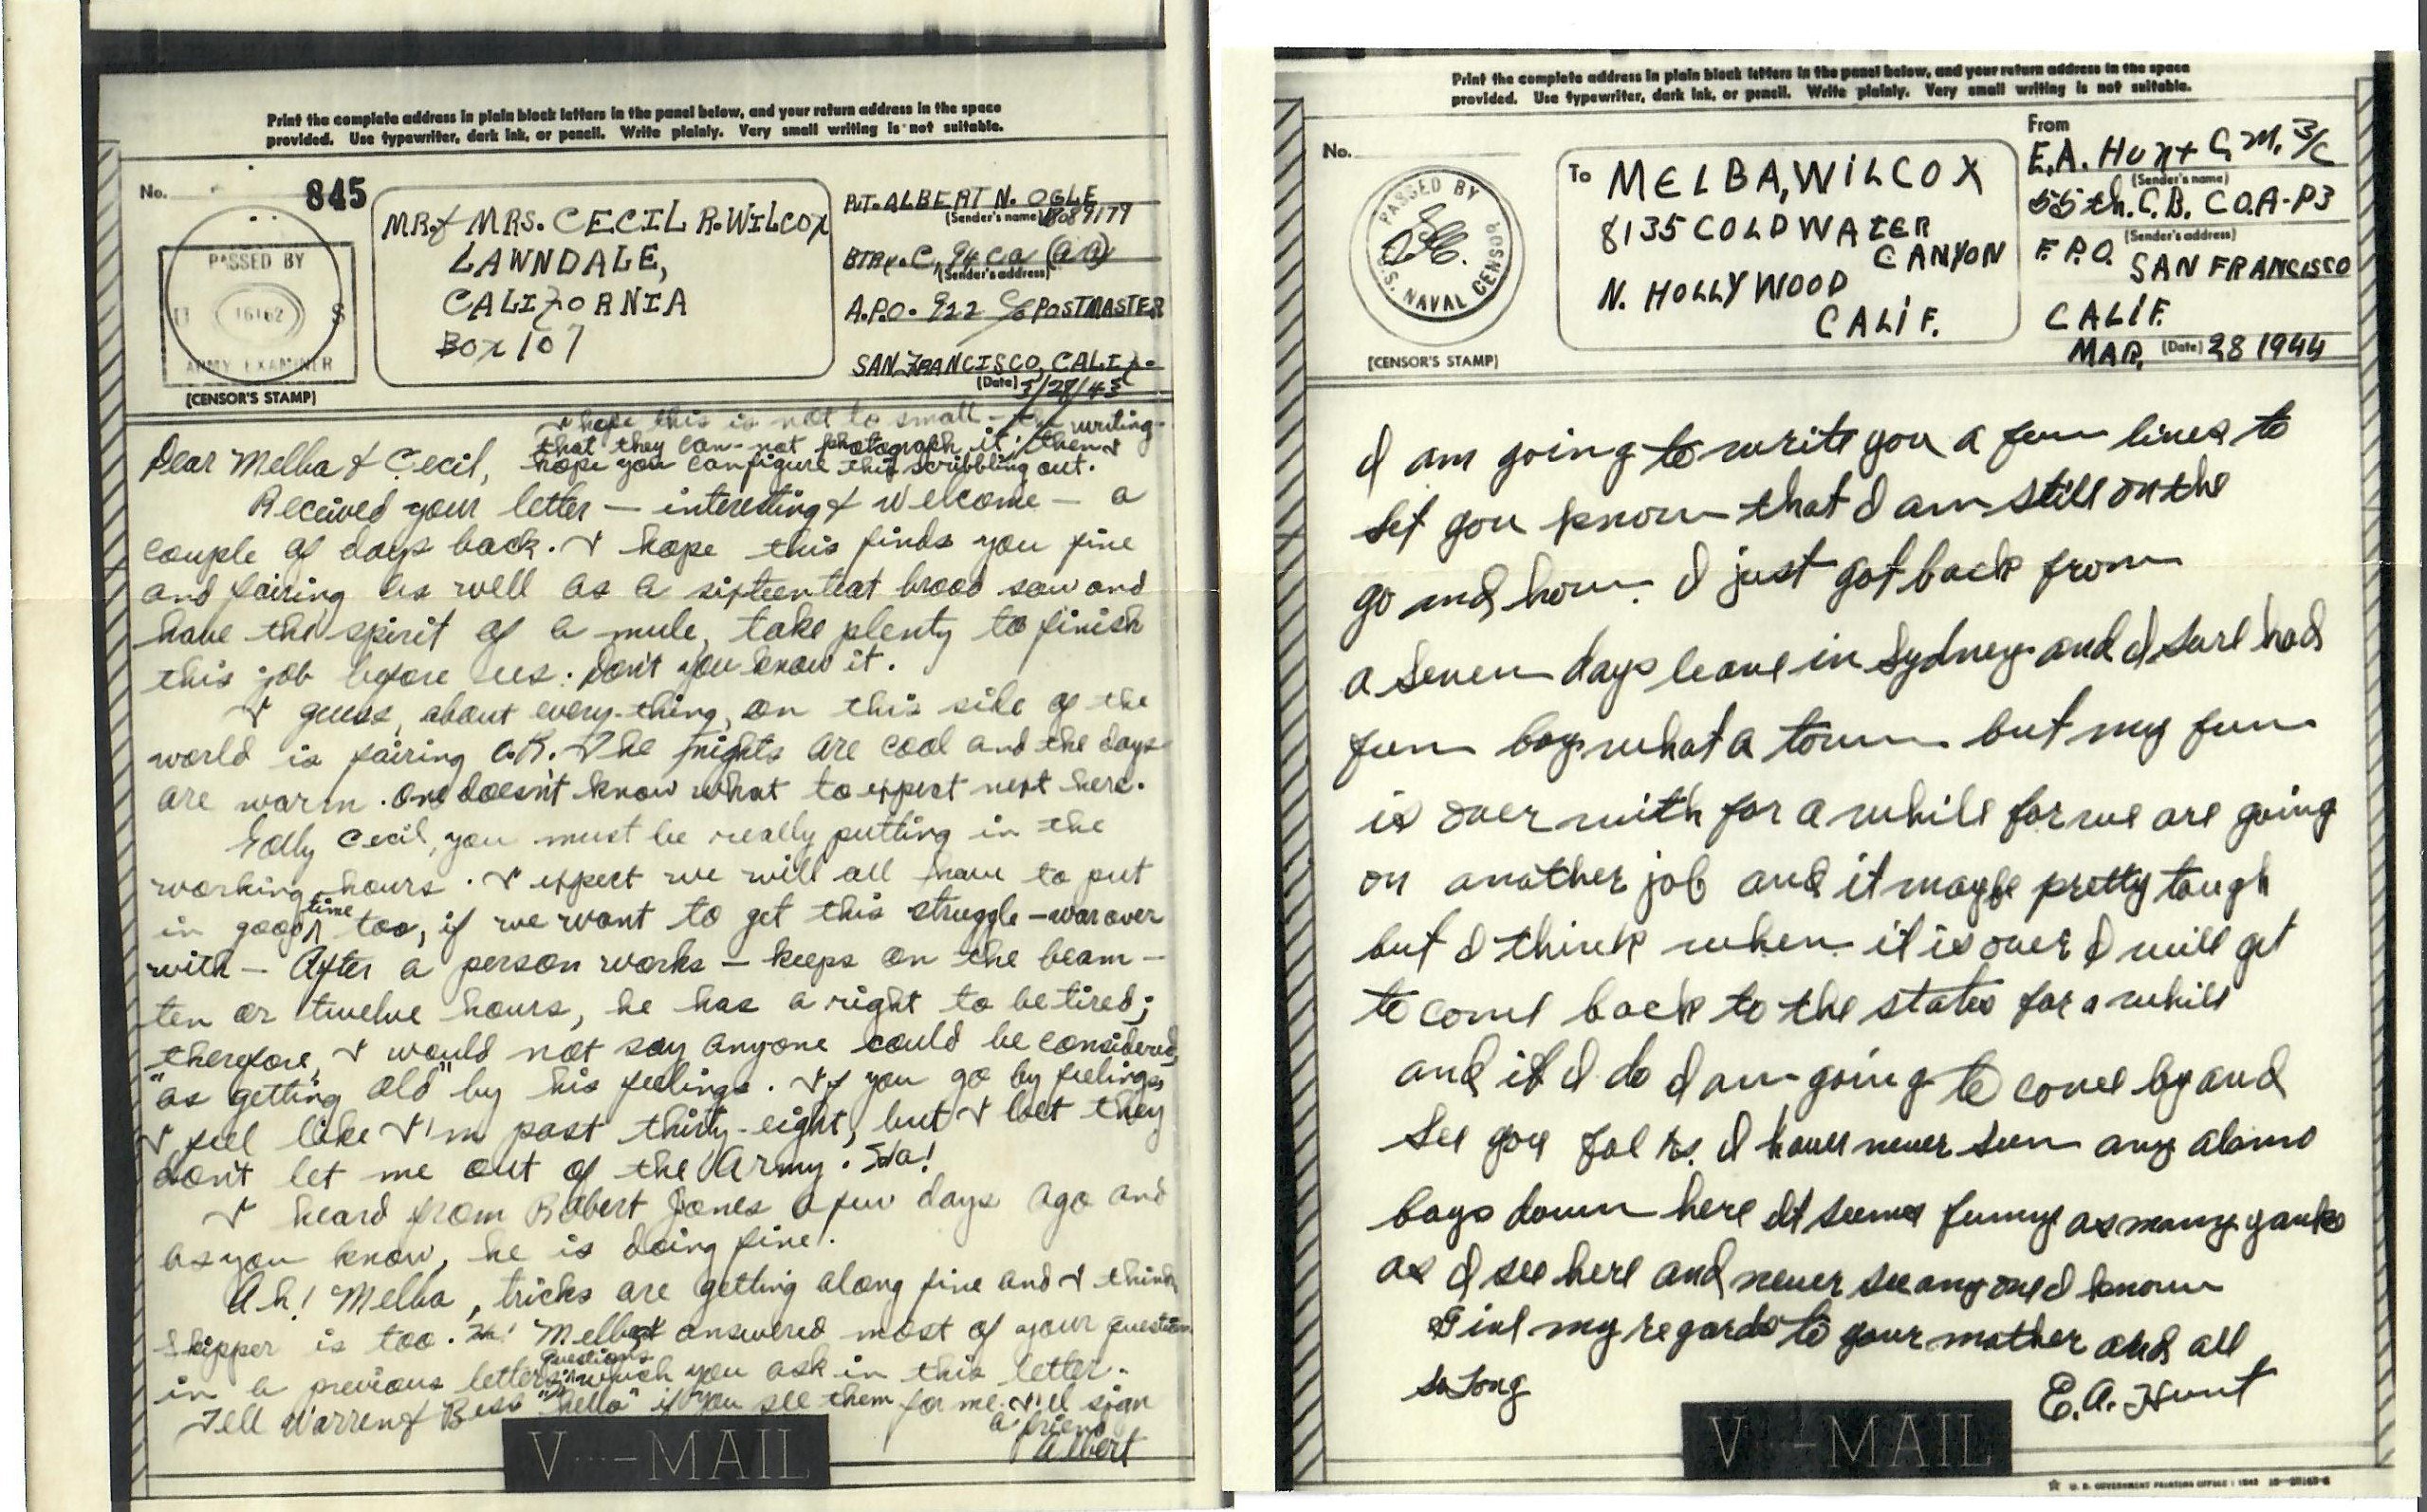 Print the complete address in plain block letters in the panel below, and your return address in the space
provided. Use typewriter, dark ink, or pencil. Write plainly. Very small writing is not suitable.
No.
845
PASSED BY
16162
S
ARMY EXAMINER
(CENSOR'S STAMP)
MR. & MRS. CECIL R. WILCOX
LAWNDALE,
CALIFORNIA
Box 107
PVT. ALBERT N. OGLE
(Sender's name)
BTRY. C, 94 CA (AA)
(Sender's address)
A.P.O. 922 c/o POSTMASTER
SAN FRANCISCO, CALIF.
(Date) 5/28/43
I hope this is not to small - the writing-
that they can-not photograph it; then I
hope you can figure this scribbling out.
Dear Melba & Cecil,
Received your letter — interesting & welcome — a
couple of days back. I hope this finds you fine
and fairing as well as a sixteen teat brood sow and
have the spirit of a mule, take plenty to finish
this job before us. Don't you know it.
I guess, about every-thing, on this side of the
world is fairing O.K. The nights are cool and the days
are warm. One doesn't know what to expect next here.
Golly Cecil, you must be really putting in the
working hours. I expect we will all have to put
in good time too, if we want to get this struggle - war over
with - After a person works - keeps on the beam -
ten or twelve hours, he has a right to be tired;
therefore, I would not say anyone could be considered,
"as getting old" by his feelings. If you go by feelings
I feel like I'm past thirty-eight, but I bet they
don't let me out of the Army. Ha!
I heard from Robert Jones a few days ago and
as you know, he is doing fine.
Ah! Melba, tricks are getting along fine and I think
Skipper is too. Melba I answered most of your question
in a previous letter questions which you ask in this letter.
Tell Warren & Bess "hello" if you see them for me. I'll sign
a friend
Albert
V···-MAIL
Print the complete address in plain block letters in the panel below, and your return address in the space
provided. Use typewriter, dark ink, or pencil. Write plainly. Very small writing is not suitable.
No.
PASSED BY
U.S. NAVAL CENSOR
(CENSOR'S STAMP)
To MELBA, WILCOX
8135 COLDWATER
CANYON
N. HOLLYWOOD
CALIF.
From
E.A. Hunt G.M. 3/C
(Sender's name)
55th. C.B. CO.A-P3
(Sender's address)
F.P.O. SAN FRANCISCO
CALIF.
MAR. (Date) 28 1944
I am going to write you a few lines to
let you know that I am still on the
go and how. I just got back from
a seven days leave in Sydney and I sure had
fun boy what a town but my fun
is over with for a while for we are going
on another job and it maybe pretty tough
but I think when it is over I will get
to come back to the states for a while
and if I do I am going to come by and
see you folks. I have never seen any alamo
boys down here It seems funny as many yanks
as I see here and never see any one I know
Give my regards to your mother and all
So Long
E.A. Hunt
V···-MAIL
U. S. GOVERNMENT PRINTING OFFICE : 1943